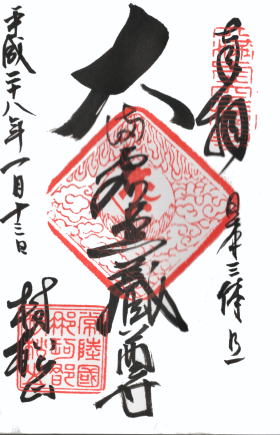 奉拝
日本三体之一
大満虚空蔵尊
平成二十八年一月十三日
村松山
常陸國
那珂郡
村松山